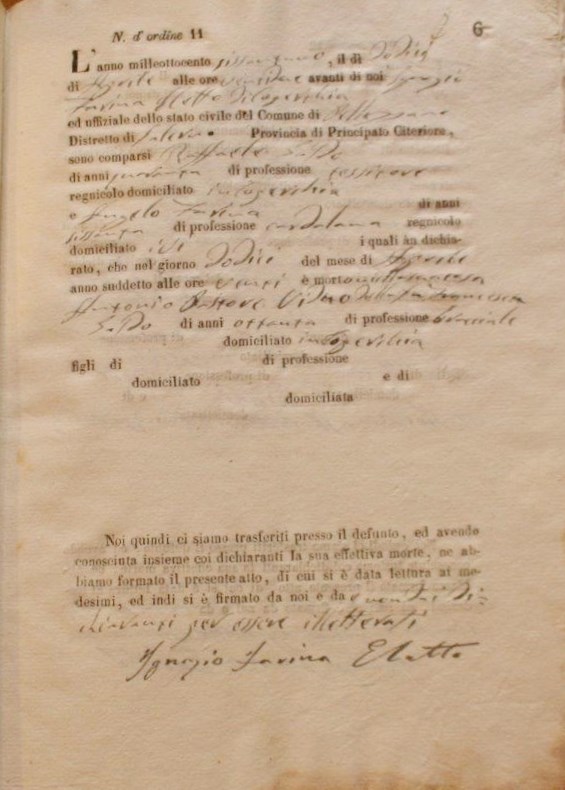 N. d'ordine 11
6
L'anno milleottocento sessantuno, il dì dodici
di Aprile alle ore ventidue avanti di noi Ignazio
Farina Eletto di
ed uffiziale dello stato civile del Comune di Pellezzano
Distretto di Salerno Provincia di Principato Citeriore,
sono comparsi Raffaele
di anni quaranta di professione tessitore
regnicolo domiciliato in
e Angelo Farina di anni
sessanta di professione cardalana regnicolo
domiciliato ivi i quali àn dichia-
rato, che nel giorno dodici del mese di Aprile
anno suddetto alle ore venti è morto
Antonio Vedovo Francesca
di anni ottanta di professione bracciale
domiciliato in
figli di di professione
domiciliato e di
domiciliata
Noi quindi ci siamo trasferiti presso il defunto, ed avendo
conosciuta insieme coi dichiaranti la sua effettiva morte, ne ab-
biamo formato il presente atto, di cui si è data lettura ai me-
desimi, ed indi si è firmato da noi e da di-
chiaranti per essere illetterati
Ignazio Farina Eletto